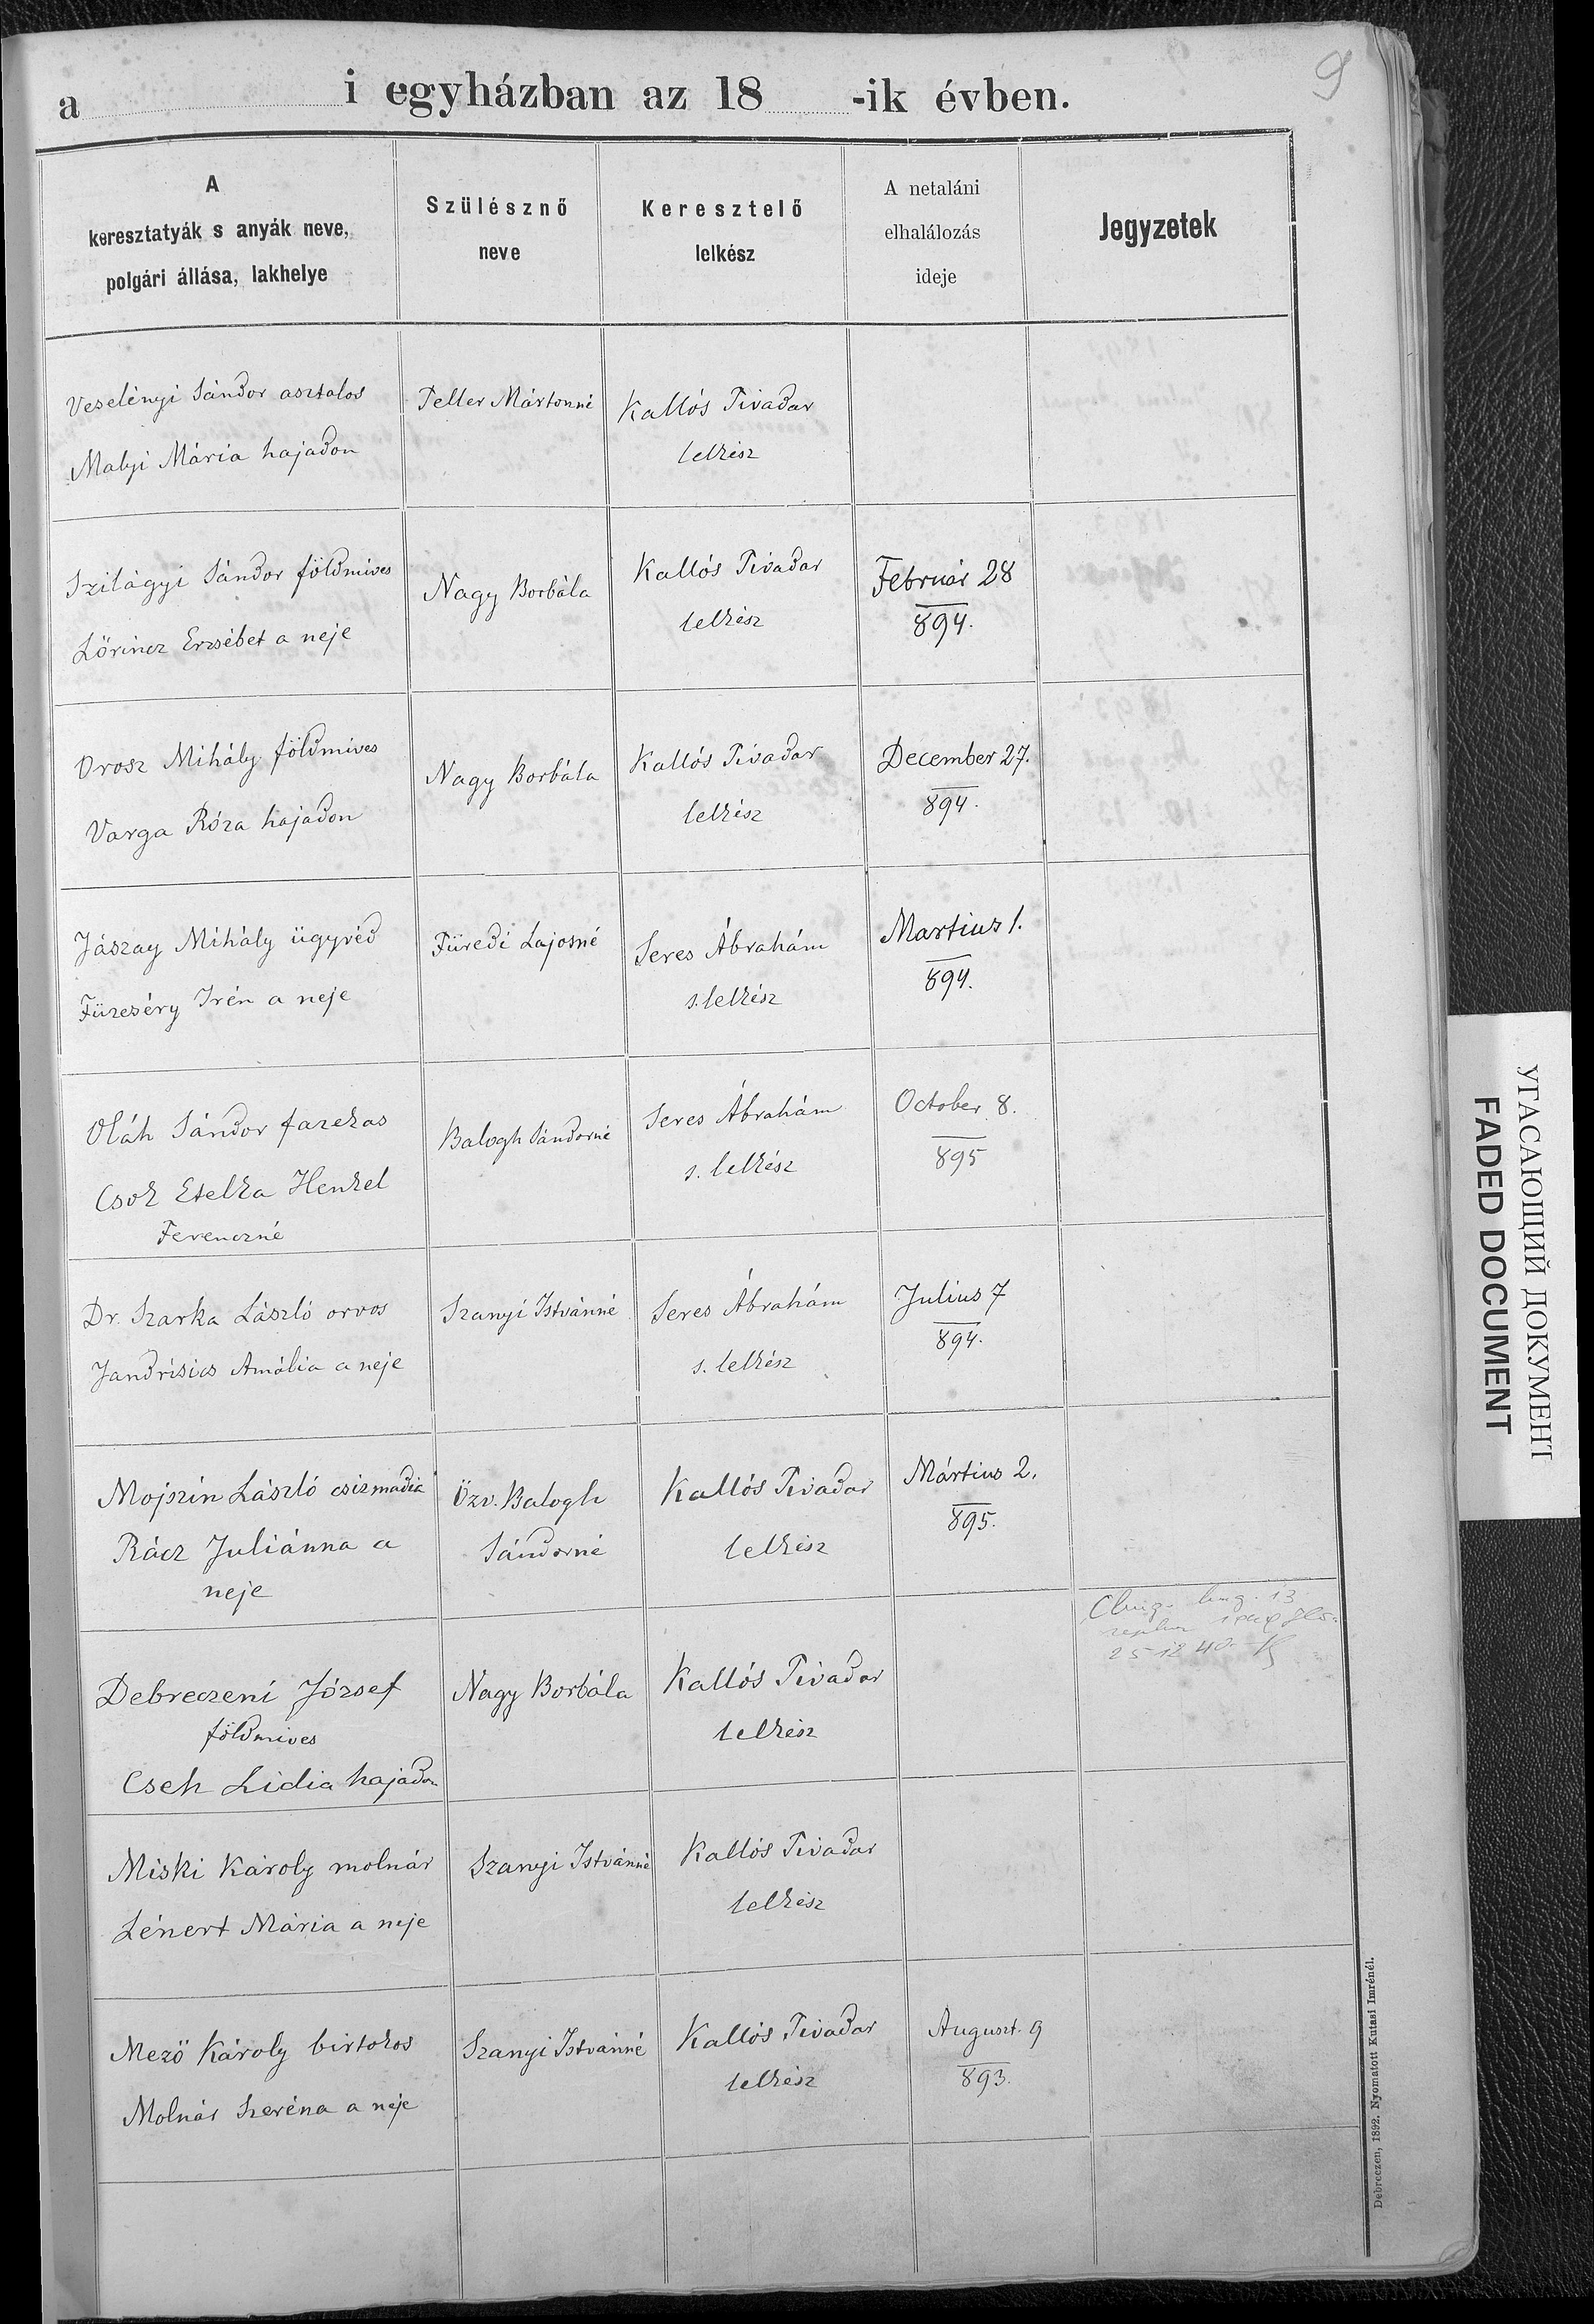 9
a i egyházban az 18 -ik évben.
A
keresztatyák s anyák neve,
polgári állása, lakhelye
Szülésznő
neve
Keresztelő
lelkész
A netaláni
elhalálozás
ideje
Jegyzetek
Veselényi Sándor asztalos
Malyi Mária hajadon
Feller Mártonné
Kallós Tivadar
lelkész
Szilágyi Sándor földmíves
Lőrincz Erzsébet a neje
Nagy Borbála
Kallós Tivadar
lelkész
Február 28
894.
Orosz Mihály földmíves
Varga Róza hajadon
Nagy Borbála
Kallós Tivadar
lelkész
December 27.
894.
Jászay Mihály ügyvéd
Füzeséry Irén a neje
Füredi Lajosné
Seres Ábrahám
s. lelkész
Martius 1.
894.
Oláh Sándor fazekas
Csok Etelka Henkel
Ferenczné
Balogh Sándorné
Seres Ábrahám
s. lelkész
October 8.
895
Dr. Szarka László orvos
Jandrisics Amália a neje
Szanyi Istvánné
Seres Ábrahám
s. lelkész
Julius 7
894.
Mojszin László csizmadia
Rácz Juliánna a
neje
Özv. Balogh
Sándorné
Kallós Tivadar
lelkész
Mártius 2.
895.
Debreczeni József
földmives
Cseh Lidia hajadon
Nagy Borbála
Kallós Tivadar
lelkész
Miski Károly molnár
Lénert Mária a neje
Szanyi Istvánné
Kallós Tivadar
lelkész
Mező Károly birtokos
Molnár Szeréna a neje
Szanyi Istvánné
Kallós Tivadar
lelkész
August. 9
893.
Debreczen, 1892. Nyomatott Kutasi Imrénél.
УГАСАЮЩИЙ ДОКУМЕНТ
FADED DOCUMENT